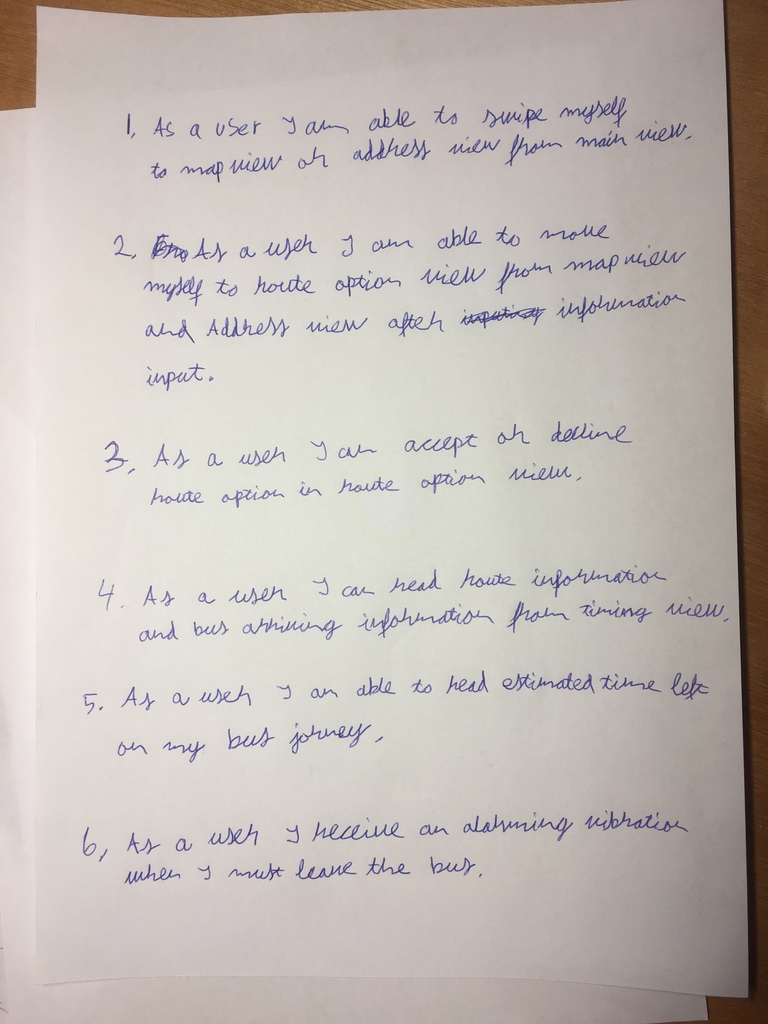 1. As a user I am able to swipe myself
to map view or address view from main view.
2. As a user I am able to move
myself to route option view from map view
and Address view after information
input.
3. As a user I can accept or decline
route option in route option view.
4. As a user I can read route information
and bus arriving information from timing view.
5. As a user I am able to read estimated time left
on my bus jorney.
6, As a user I receive an alarming vibration
when I must leave the bus.